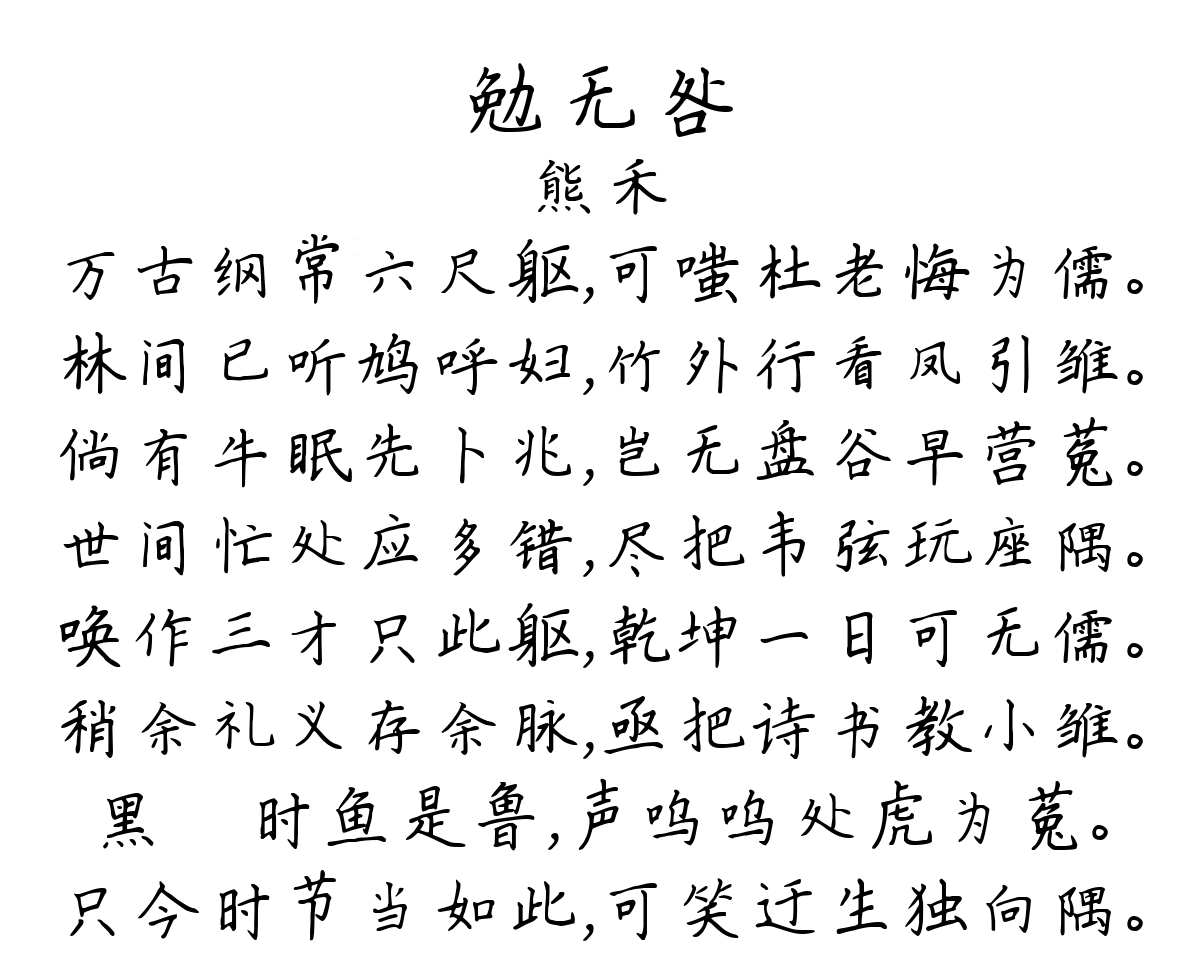 勉无咎
熊禾
万古纲常六尺躯,可嗤杜老悔为儒。
林间已听鸠呼妇,竹外行看凤引雏。
倘有牛眠先卜兆,岂无盘谷早营菟。
世间忙处应多错,尽把韦弦玩座隅。
唤作三才只此躯,乾坤一日可无儒。
稍余礼义存余脉,亟把诗书教小雏。
黑 时鱼是鲁,声呜呜处虎为菟。
只今时节当如此,可笑迂生独向隅。